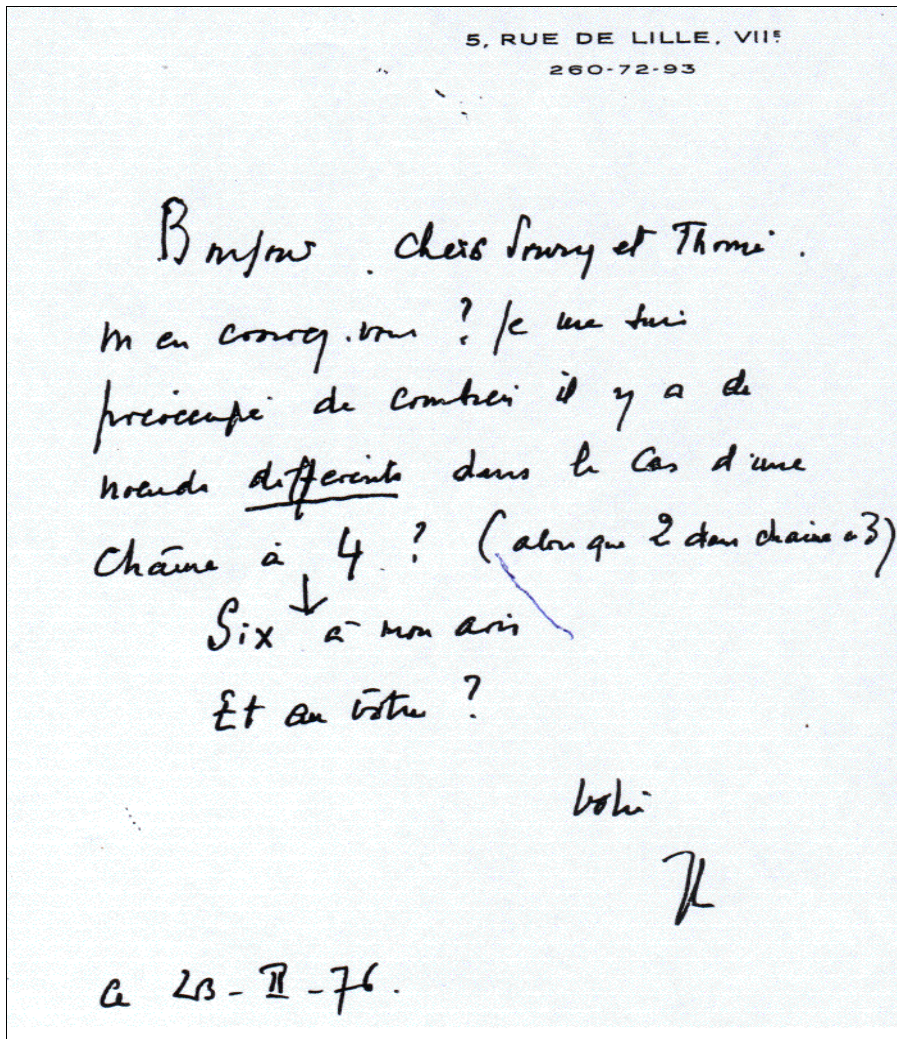 5, RUE DE LILLE, VIIE
260-72-93
Bonjour . Chers Soury et Thomé .
M'en croirez-vous ? Je me suis
préoccupé de combien il y a de
nœuds différents dans le cas d'une
Chaîne à 4 ? (alors que 2 dans chaine à 3)
↓
Six à mon avis
Et au vôtre ?
Votre
JL
Ce 23 - II - 76.